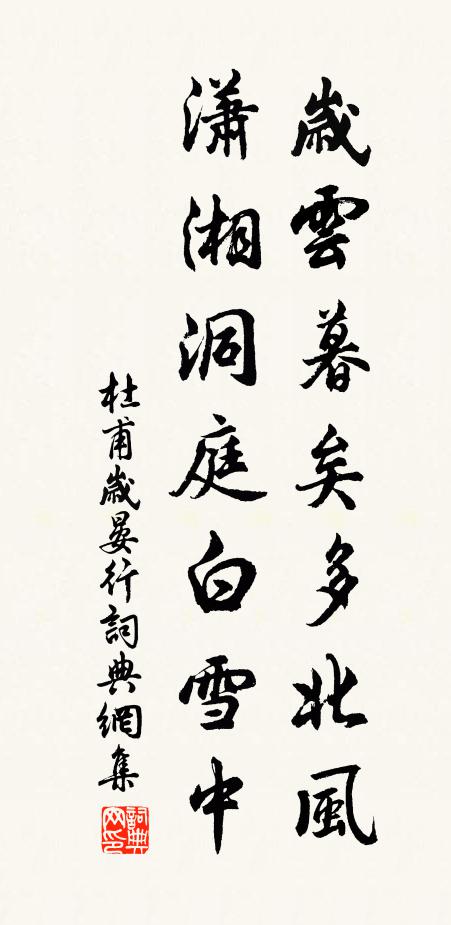 歲雲暮矣多北風
瀟湘洞庭白雪中
杜甫歲晏行詞典網集
詞典
网印